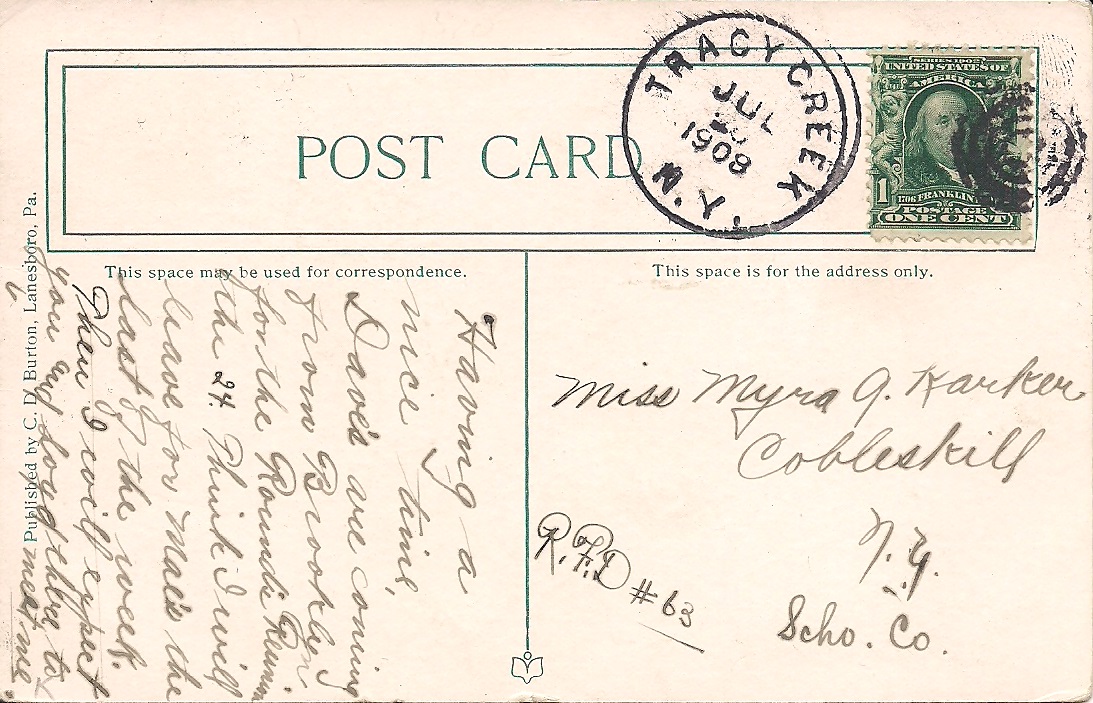 POST CARD
TRACY CREEK
JUL
1908
N.Y.
SERIES 1902
UNITED STATES OF
AMERICA
1
1706 FRANKLIN
POSTAGE
ONE CENT
This space may be used for correspondence.
This space is for the address only.
Having a
nice time,
Dave's are coming
from Brooklyn
for the Round's Reunion
the 24 Think I will
leave for Mae's the
last of the week.
Then I will expect
you and to
meet me.
Miss Myra J. Karker
Cobleskill
N.Y.
Scho. Co.
R.F.D #63
Published by C. D. Burton, Lanesboro, Pa.